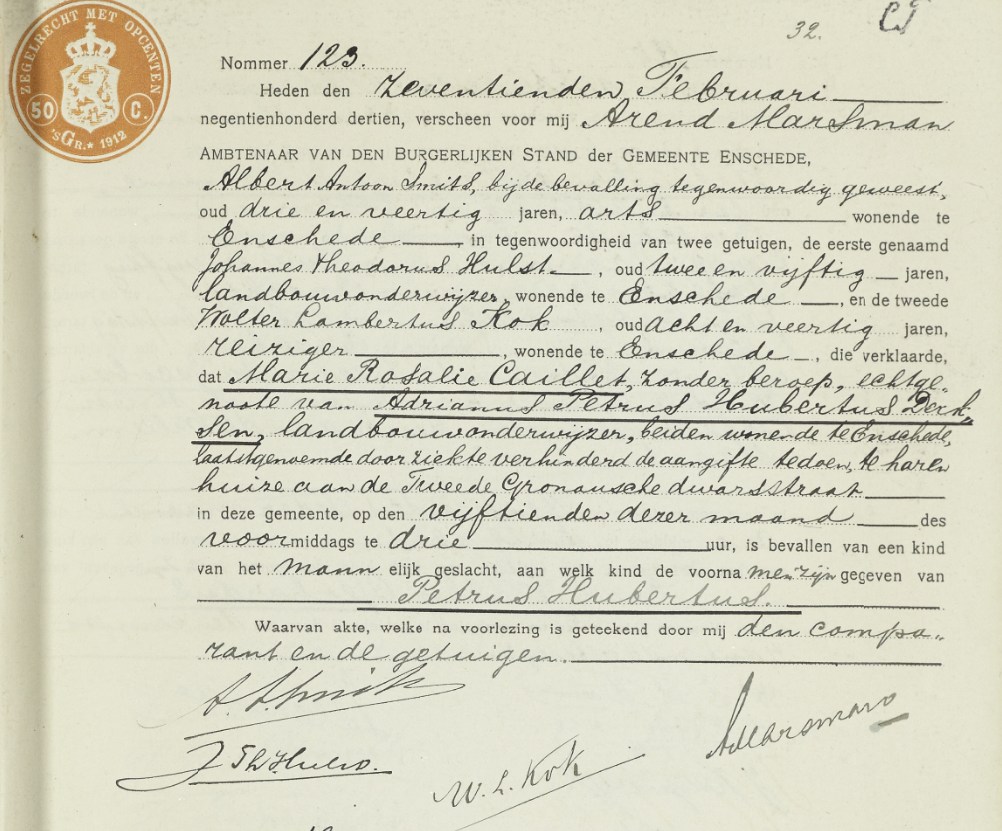 32.
ZEGELRECHT MET OPCENTEN
50 C.
'sGr. * 1912
Nommer 123.
Heden den zeventienden Februari
negentienhonderd dertien, verscheen voor mij Arend Marsman
AMBTENAAR VAN DEN BURGERLIJKEN STAND der GEMEENTE ENSCHEDE,
Albert Antoon Smits, bij de bevalling tegenwoordig geweest,
oud drie en veertig jaren, arts wonende te
Enschede, in tegenwoordigheid van twee getuigen, de eerste genaamd
Johannes Theodorus Hulst, oud twee en vijftig jaren,
landbouwonderwijzer, wonende te Enschede, en de tweede
Wolter Lambertus Kok, oud acht en veertig jaren,
reiziger, wonende te Enschede, die verklaarde,
dat Marie Rosalie Caillet, zonder beroep, echtge-
noote van Adrianus Petrus Hubertus Derk-
sen, landbouwonderwijzer, beiden wonende te Enschede,
laatstgenoemde door ziekte verhinderd de aangifte te doen, te haren
huize aan de Tweede Gronausche dwarsstraat
in deze gemeente, op den vijftienden dezer maand des
voormiddags te drie uur, is bevallen van een kind
van het mannelijk geslacht, aan welk kind de voornamen zijn gegeven van
Petrus Hubertus.
Waarvan akte, welke na voorlezing is geteekend door mij den compa-
rant en de getuigen.
A. A. Smits
AMarsman
J Th Hulst.
W. L. Kok